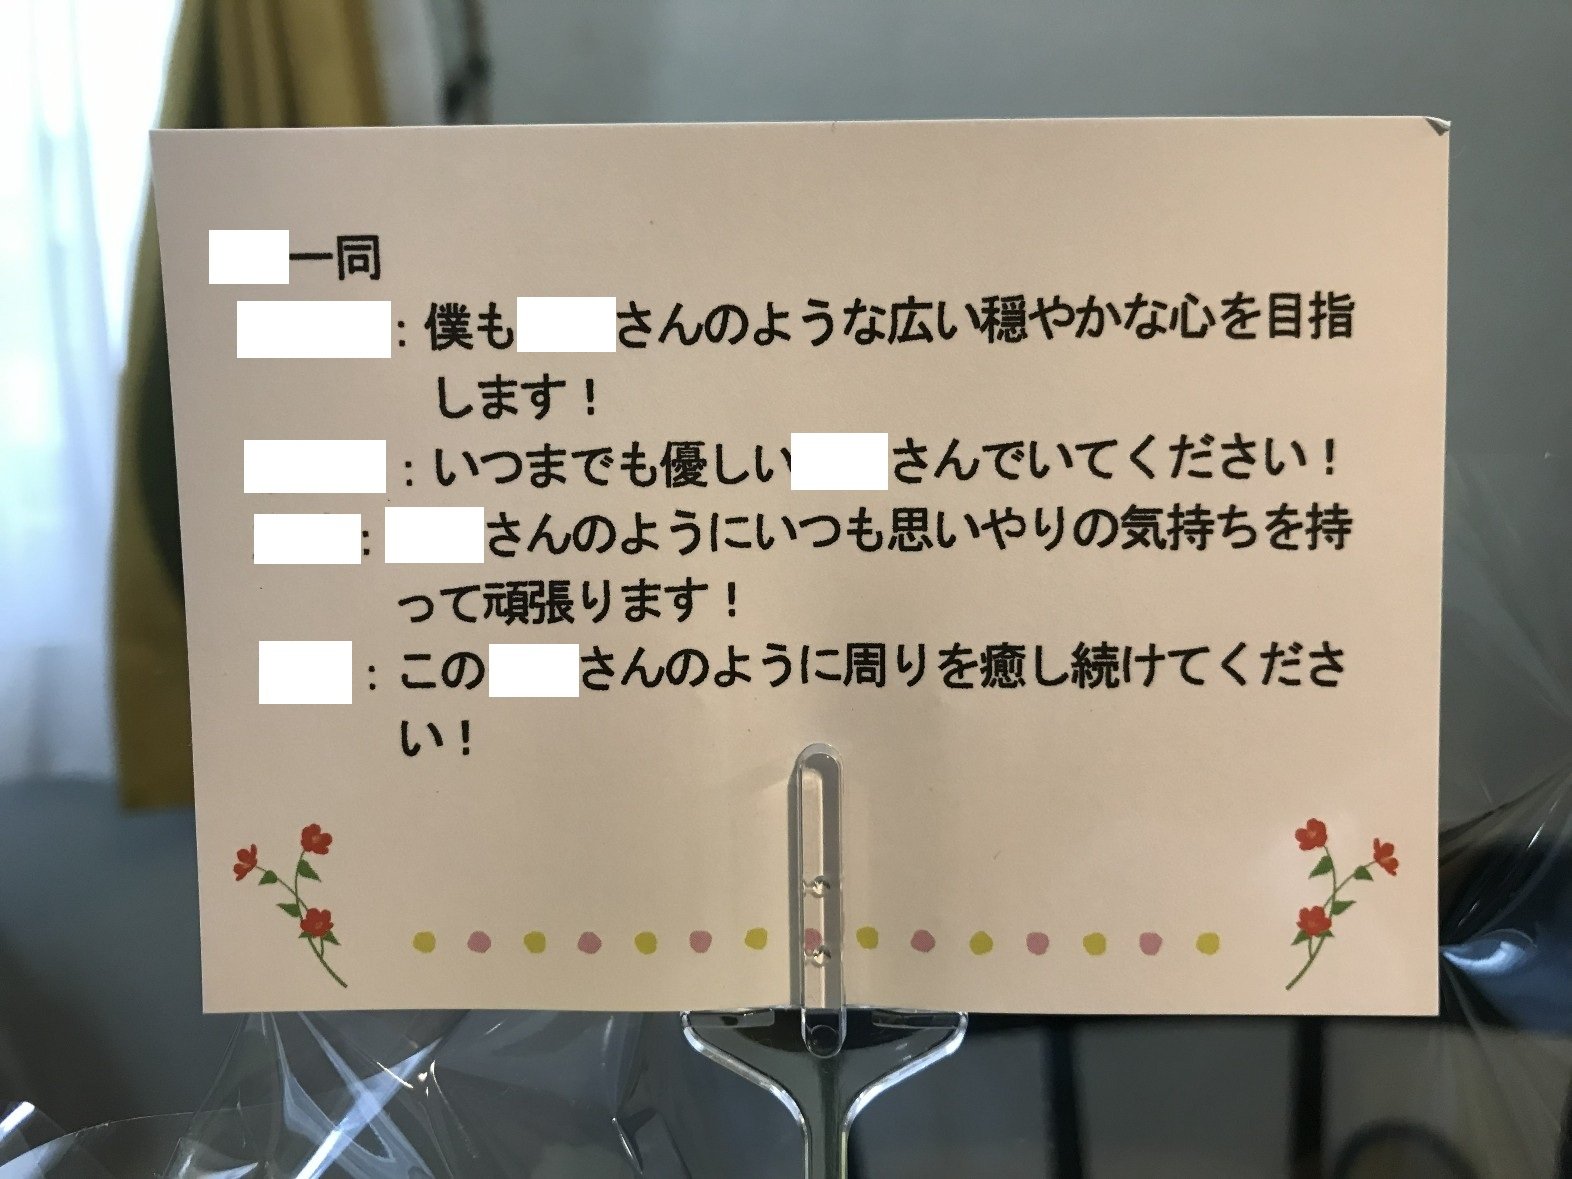 一同
：僕もさんのような広い穏やかな心を目指
します！
：いつまでも優しいさんでいてください！
：さんのようにいつも思いやりの気持ちを持
って頑張ります！
：このさんのように周りを癒し続けてくださ
い！